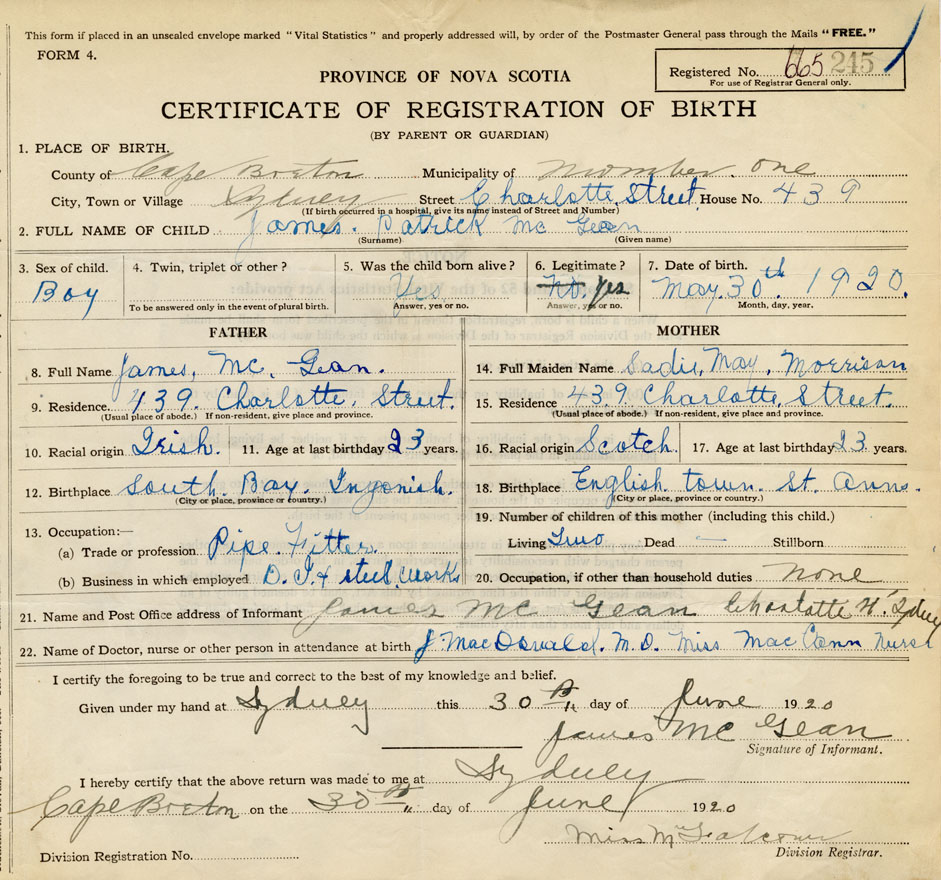 This form if placed in an unsealed envelope marked "Vital Statistics" and properly addressed will, by order of the Postmaster General pass through the Mails "FREE."
FORM 4.
Registered No. 665 245
For use of Registrar General only.
PROVINCE OF NOVA SCOTIA
CERTIFICATE OF REGISTRATION OF BIRTH
(BY PARENT OR GUARDIAN)
1. PLACE OF BIRTH.
County of Cape Breton Municipality of Number. One
City, Town or Village Sydney Street Charlotte Street House No. 439
(If birth occurred in a hospital, give its name instead of Street and Number)
2. FULL NAME OF CHILD James. Patrick Mc Gean
(Surname) (Given name)
3. Sex of child. 4. Twin, triplet or other ? 5. Was the child born alive ? 6. Legitimate ? 7. Date of birth.
Boy Yes No. Yes May. 30th 1920.
To be answered only in the event of plural birth. Answer, yes or no. Answer, yes or no. Month, day, year.
FATHER MOTHER
8. Full Name James, Mc, Gean. 14. Full Maiden Name Sadie, May, Morrison
9. Residence. 439. Charlotte, Street. 15. Residence 439. Charlotte, Street.
(Usual place of abode.) If non-resident, give place and province. (Usual place of abode.) If non-resident, give place and province.
10. Racial origin Irish. 11. Age at last birthday 23 years. 16. Racial origin Scotch. 17. Age at last birthday 23 years.
12. Birthplace South. Bay. Ingonish. 18. Birthplace English town. St. Anns.
(City or place, province or country.) (City or place, province or country.)
13. Occupation:— 19. Number of children of this mother (including this child.)
(a) Trade or profession Pipe. Fitter. Living Two Dead — Stillborn
(b) Business in which employed D. I & steel, works 20. Occupation, if other than household duties none
21. Name and Post Office address of Informant James Mc Gean Charlotte St Sydney
22. Name of Doctor, nurse or other person in attendance at birth J MacDonald. M.D. Miss Mac Cann Nurse
I certify the foregoing to be true and correct to the best of my knowledge and belief.
Given under my hand at Sydney this 30th day of June 1920
James Mc Gean
Signature of Informant.
I hereby certify that the above return was made to me at Sydney
Cape Breton on the 30th day of June 1920
Miss
Division Registration No. Division Registrar.